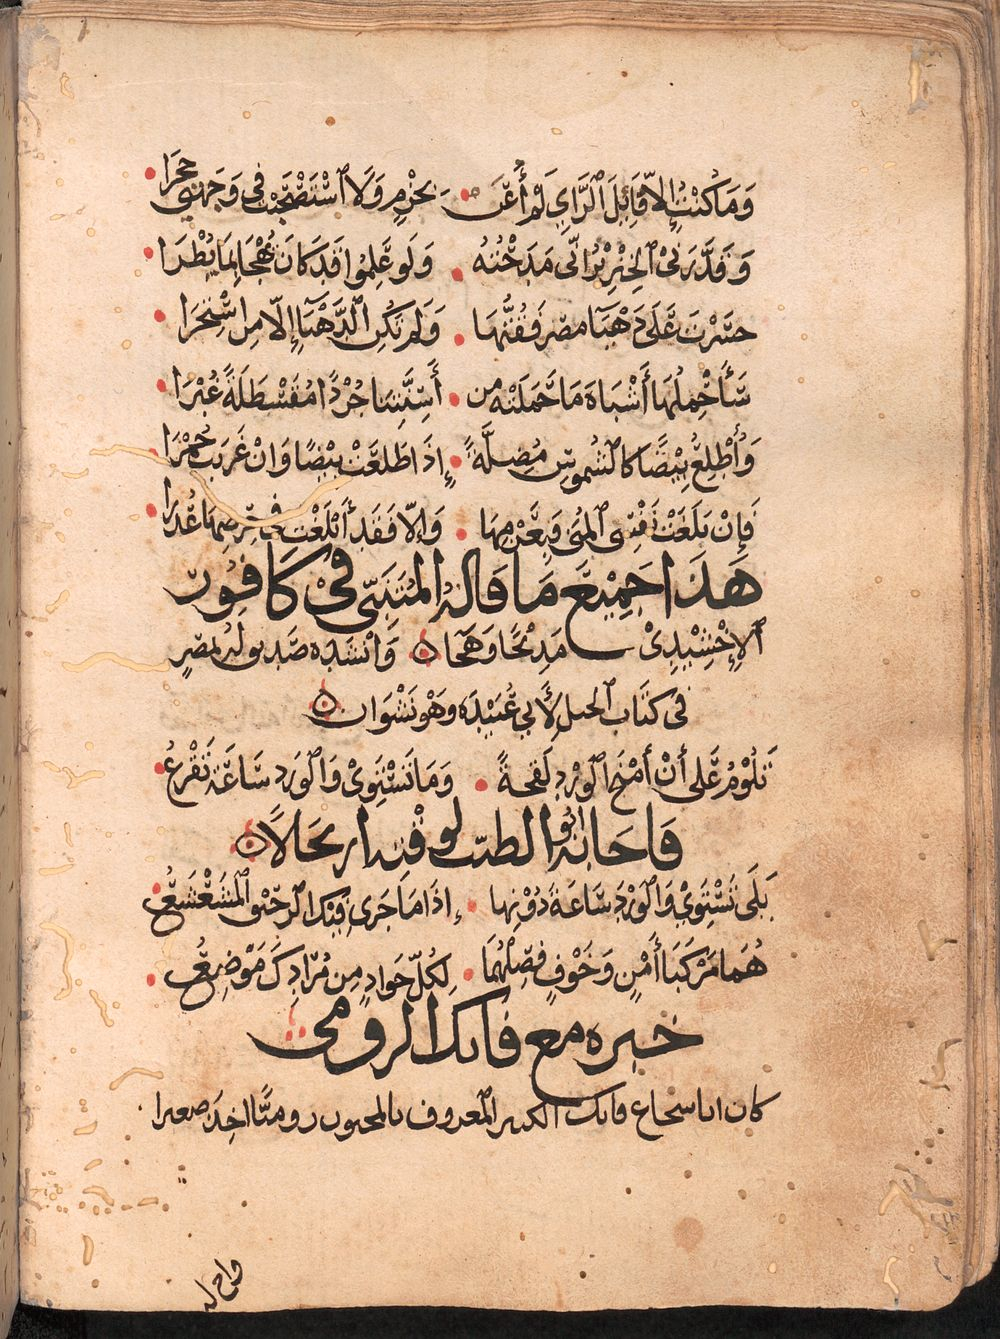 وَمَا كُنْتُ إِلَّا فَائِلَ الرَّأيِ لَمْ أُعَنْ بِحَزْمٍ وَلَا اسْتَصْحَبْتُ فِي وَجْهَتِي حِجْرَا
وَقَدَّرَنِي الْخِنْزِيرُ أَنِّي مَدَحْتُهُ وَلَوْ عَلِمُوا قَدْ كَانَ يُهْجَا بِمَا يُطْرَا
جَسَرْتُ عَلَى دَهْيَا مِصْرَ فَفُتُّهَا وَلَمْ تَكُنِ الدَّهْيَا إِلَّا مِنِ اسْتَجْرَا
سَأَجْلِبُهَا أَشْبَاهَ مَا حَمَلَتْهُ مِن أَسِنَّتِهَا جُرْدًا مُقَسْطَلَةً غُبْرَا
وَأُطْلِعُ بِيْضًا كَالشُّمُوسِ مُطِلَّةً إِذَا طَلَعَتْ بِيْضًا وَانْ غَرَبَتْ حُمْرَا
فَإِنْ بَلَغَتْ نَفْسِي المُنَى فَبِعَزْمِهَا وَإِلَّا فَقَدْ أَبْلَغْتُ فِي حِرْصِهَا عُذْرَا
هَذَا جَمِيْعُ مَا قَالَهُ الْمُتَنَبِّي فِيْ كَافُوْر
الإِخْشِيْدِيْ مَدْحًا وَهِجَا وَانْشَدَهُ صَدِيق لَهُ بِمصْرٍ
فِي كِتَاب الخيل لِأَبِي عُبَيْدَه وَهُو نَشْوَان
تَلُوْمُ عَلَى أَنْ أَمْنَحَ الوَرْدَ لَقْحَةً وَمَا تَسْتَوِيْ وَالوَرْدَ سَاعَةَ تَفْزَعُ
فاجابه ابو الطيب لوقته ارتجالًا
بَلَى تَسْتَوِيْ وَالوَرْدَ سَاعَةَ دُوْنِهَا إِذَا مَا جَرَى فِيْكَ الرَّحِيْقُ المُشَعْشَعُ
هُمَا مَرْكَبَا أَمْنٍ وَخَوْفٍ فَصِلْهُمَا لِكُلِّ جَوَادٍ مِن مُرَادِكَ مَوْضِعُ
خبره مع فاتك الرومي
كان ابا شجاع فاتك الكبير المعروف بالمجنون روميًّا اخِذَ صغيرا
واخ له